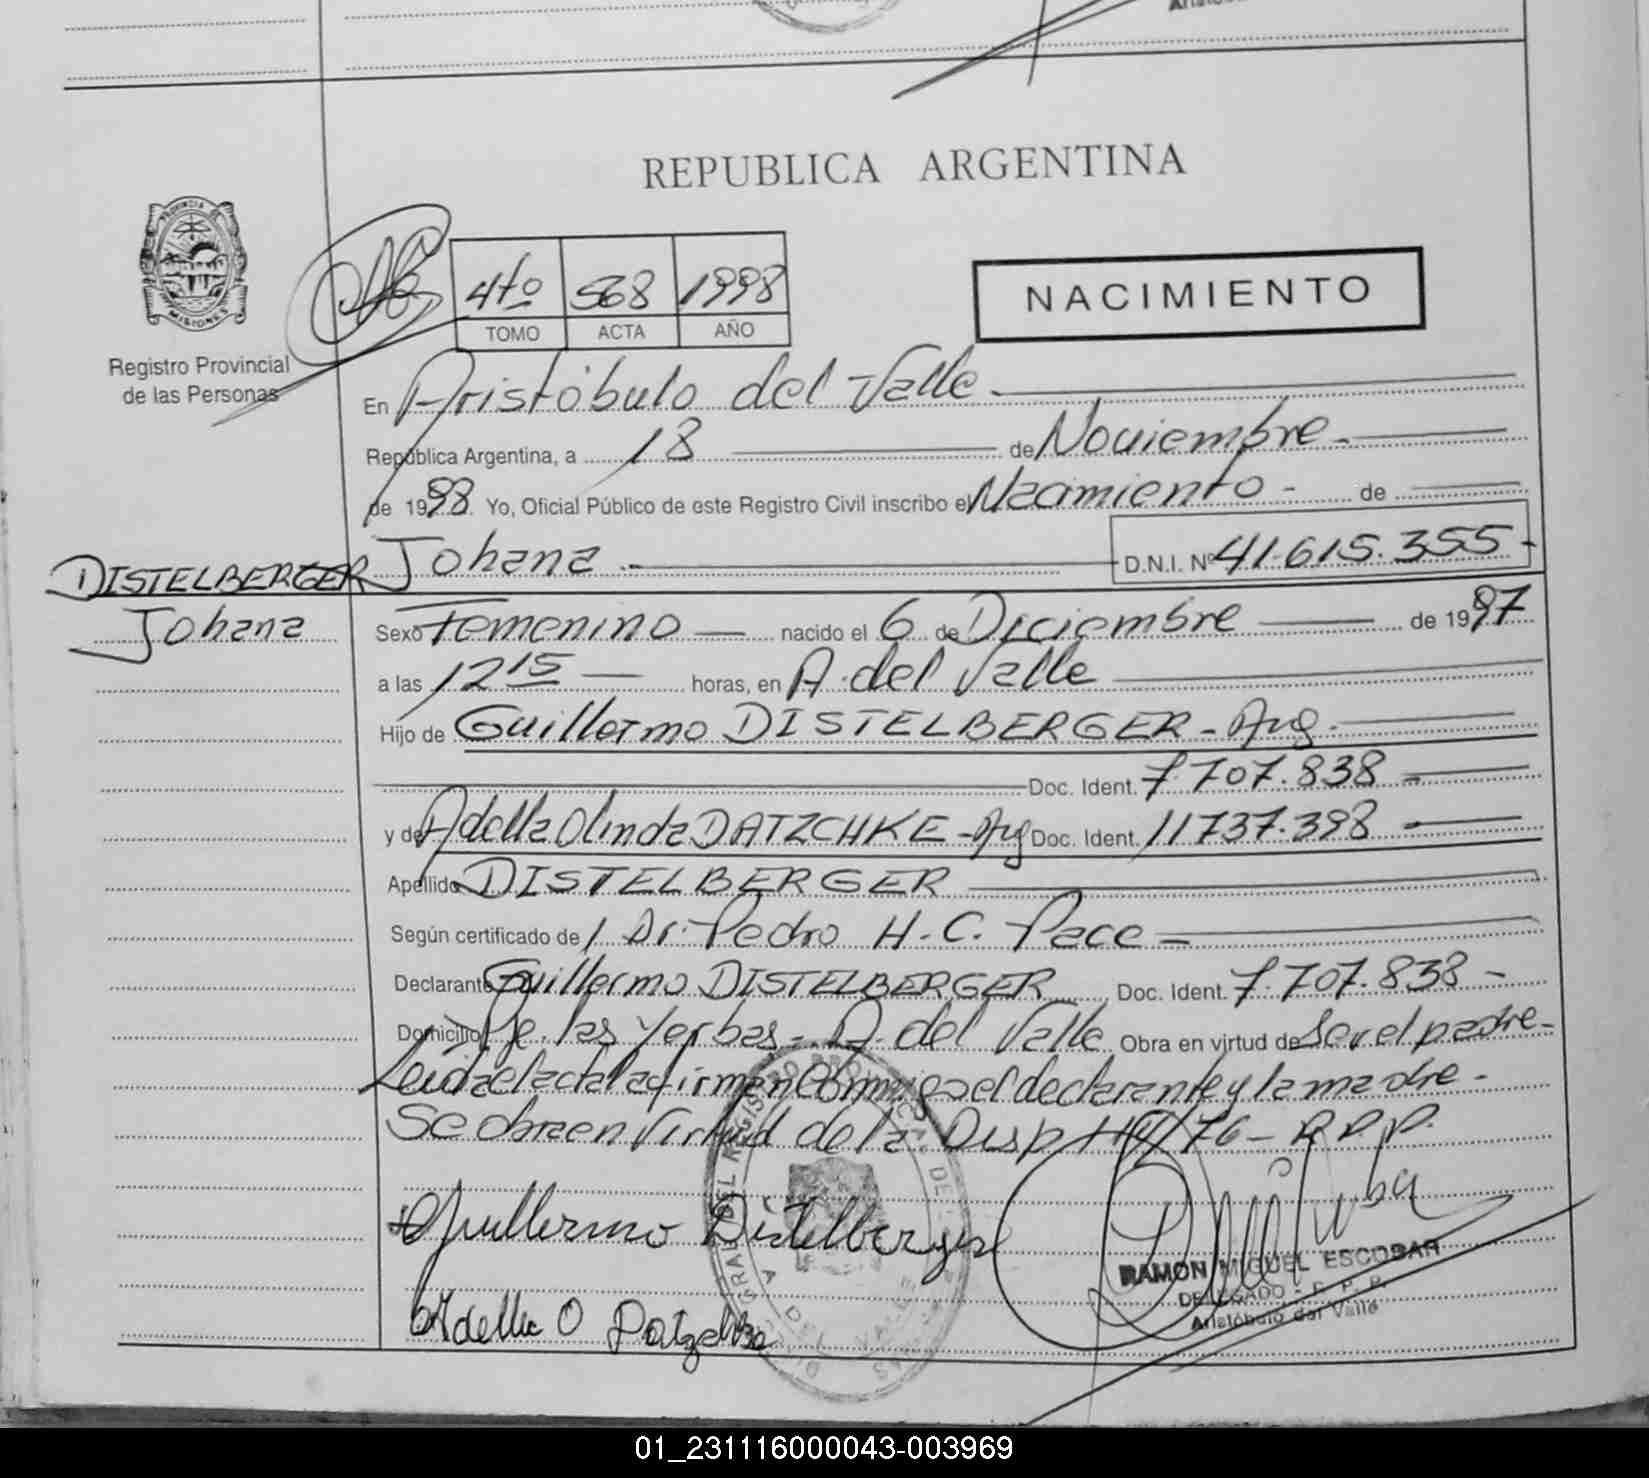 REPUBLICA ARGENTINA
PROVINCIA DE
MISIONES
Registro Provincial
de las Personas
4to 568 1998
TOMO ACTA AÑO
NACIMIENTO
En Aristóbulo del Valle
República Argentina, a 18 de Noviembre
de 1998 Yo, Oficial Público de este Registro Civil inscribo el Nacimiento - de
DISTELBERGER Johana D.N.I. Nº 41.615.355-
Johana Sexo Femenino nacido el 6 de Diciembre de 1997
a las 12 15 horas, en A. del Valle
Hijo de Guillermo DISTELBERGER - Arg.
Doc. Ident. 7.707.838
y de Adella Olinda DATZCHKE - Arg Doc. Ident. 11737.398
Apellido DISTELBERGER
Según certificado de Dr. Pedro H. C. Pace
Declarante Guillermo DISTELBERGER Doc. Ident. 7.707.838-
Domicilio Pje. las Yerbas - A. del Valle Obra en virtud de Ser el padre-
Leida el acta la firman Conmigo el declarante y la madre-
Se obra en virtud de la Disp 76- R.P.P.
Guillermo Distelberger
RAMON MIGUEL ESCOBAR
DELEGADO - R. P. P.
Aristóbulo del Valle
Adella O
01_231116000043-003969